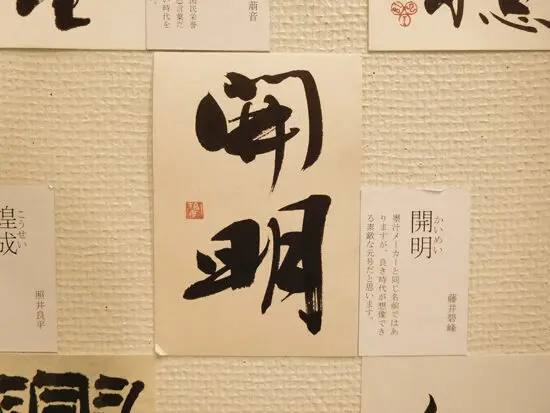 開明
かいめい
開明
墨汁メーカーと同じ名前ではあ
りますが、良き時代が想像でき
る素敵な元号だと思います。
藤井碧峰
こうせい
煌成
照井良平
国民栄誉
言葉だ
い時代を